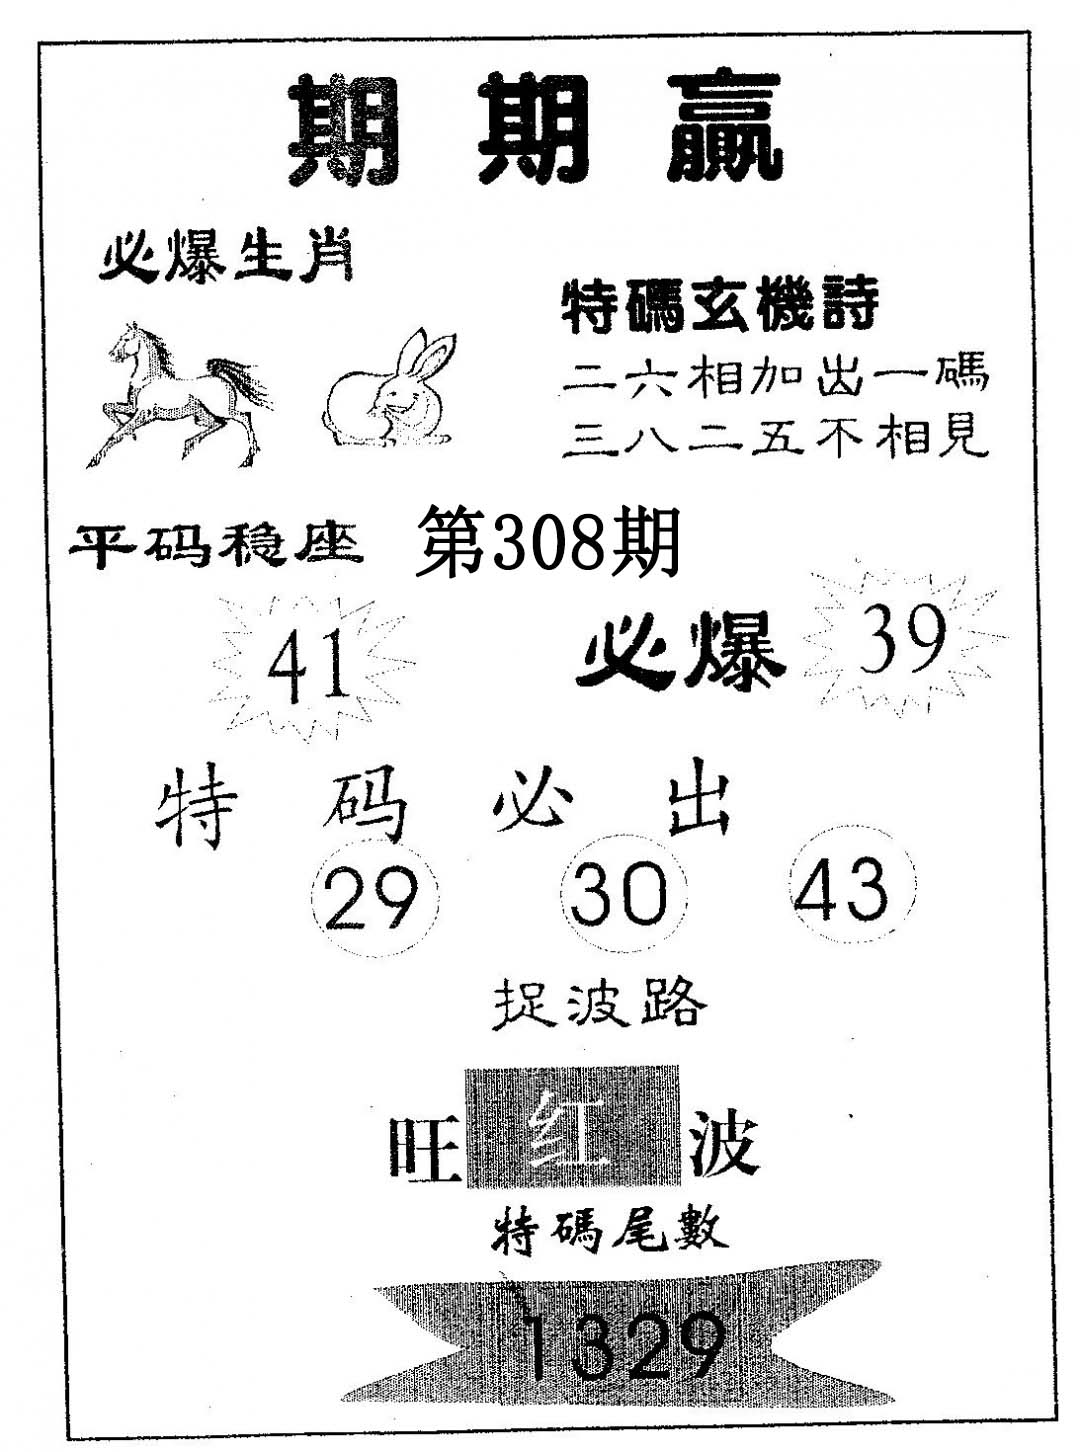 期期赢
必爆生肖
特碼玄機詩
二六相加出一碼
三八二五不相見
平码稳座
第308期
41
必爆
39
特码必出
29 30 43
捉波路
旺红波
特碼尾數
1329